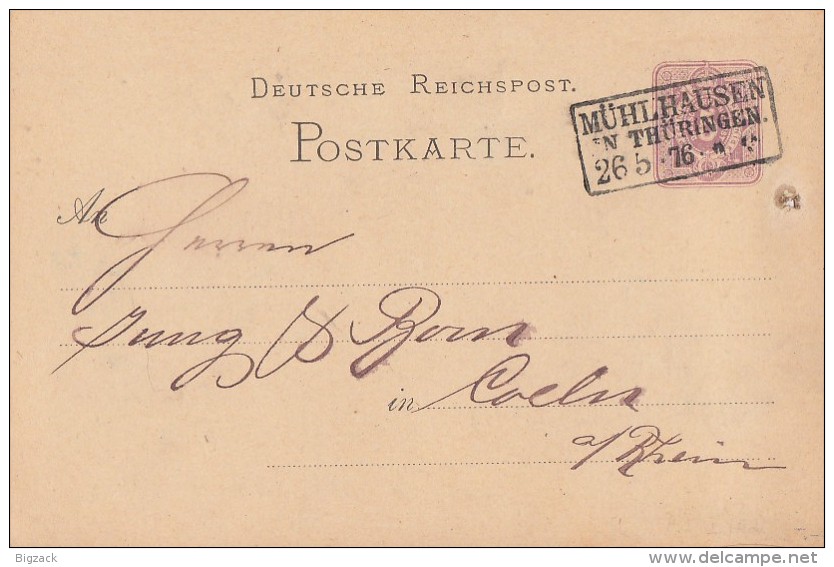 DEUTSCHE REICHSPOST.
POSTKARTE.
MÜHLHAUSEN
IN THÜRINGEN.
26 5 76
An Herren
Jung & Born
in Coeln
a/Rhein
Bigzack
delcampe.net